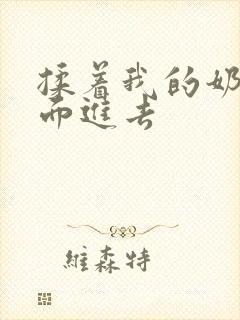 揉着我的奶
而进去
維森特